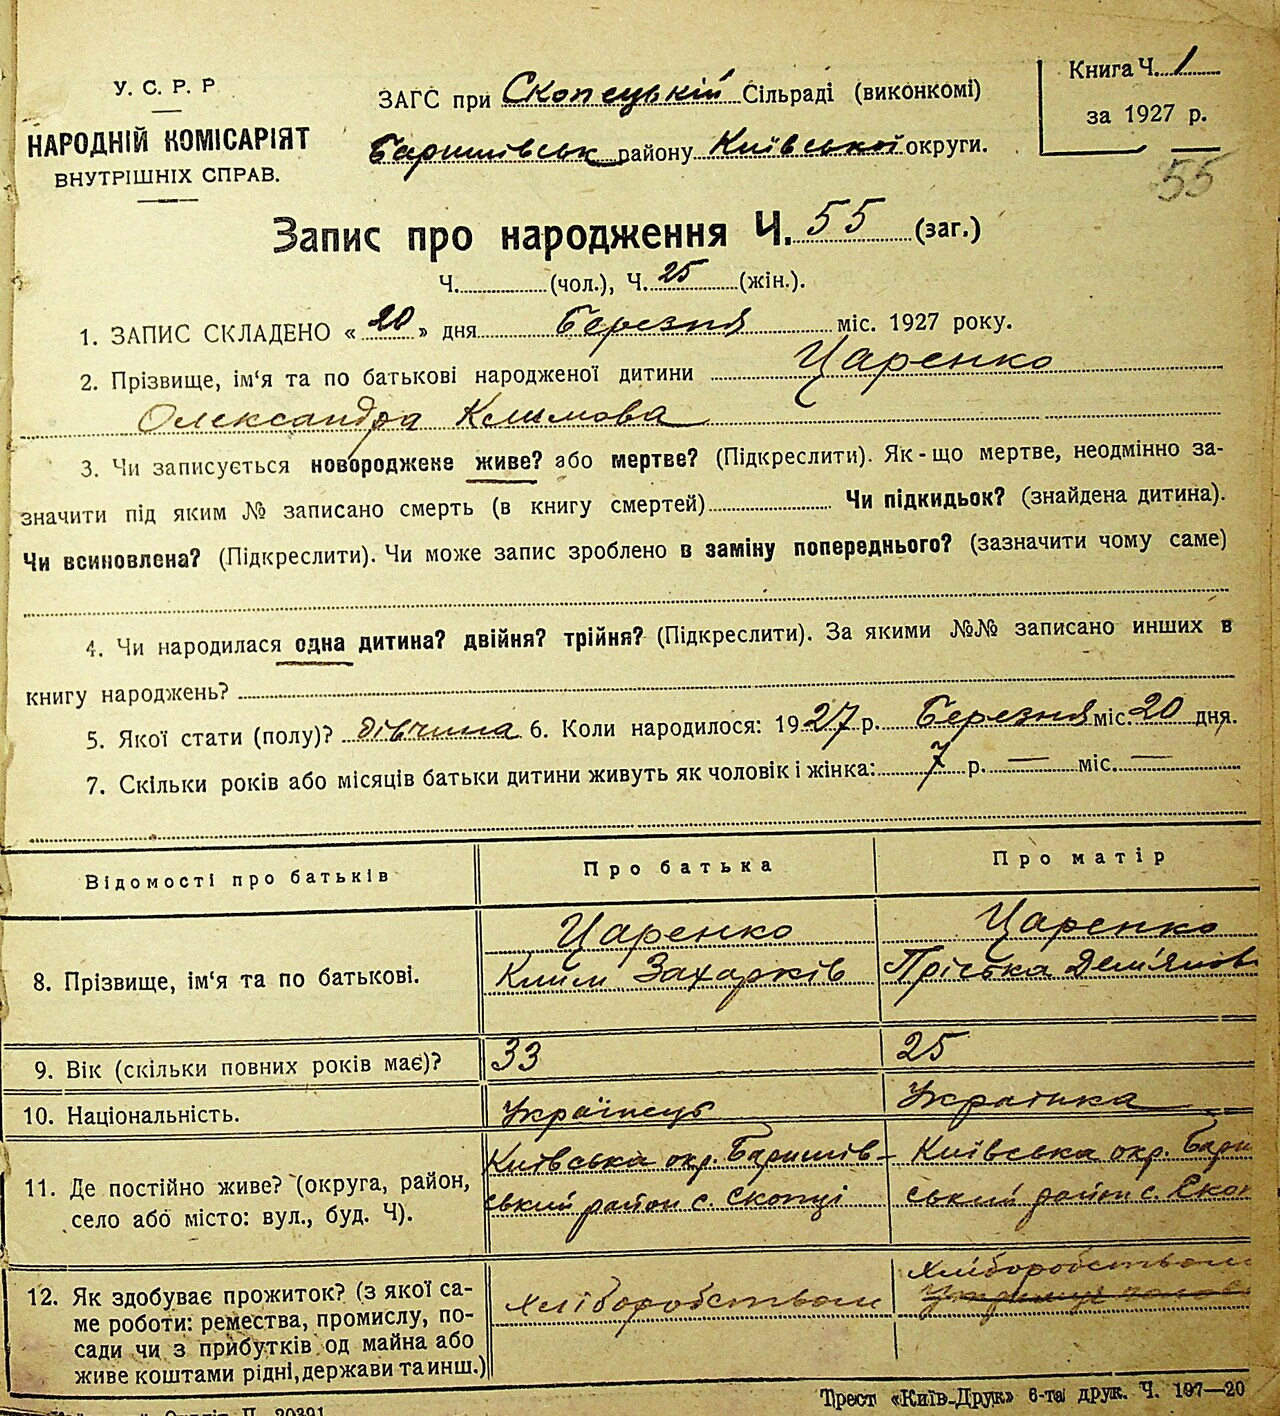 У. С. Р. Р
НАРОДНІЙ КОМІСАРІЯТ
ВНУТРІШНІХ СПРАВ.
ЗАГС при Скопецькій Сільраді (виконкомі)
Баришівськ району Київської округи.
Книга Ч. 1
за 1927 р.
55
Запис про народження Ч. 55 (заг.)
Ч. (чол.), Ч. 25 (жін.).
1. ЗАПИС СКЛАДЕНО « 20 » дня Березня міс. 1927 року.
2. Прізвище, ім‘я та по батькові народженої дитини Царенко
Олександра Климова
3. Чи записується новороджене живе? або мертве? (Підкреслити). Як-що мертве, неодмінно за-
значити під яким № записано смерть (в книгу смертей) Чи підкидьок? (знайдена дитина).
Чи всиновлена? (Підкреслити). Чи може запис зроблено в заміну попереднього? (зазначити чому саме)
4. Чи народилася одна дитина? двійня? трійня? (Підкреслити). За якими №№ записано инших в
книгу народжень?
5. Якої стати (полу)? дівчина 6. Коли народилося: 1927 р. Березня міс. 20 дня.
7. Скільки років або місяців батьки дитини живуть як чоловік і жінка: 7 р. — міс. —
Відомості про батьків Про батька Про матір
Царенко Царенко
8. Прізвище, ім‘я та по батькові. Клим Захарків Пріська Дем'янов
9. Вік (скільки повних років має)? 33 25
10. Національність. Українець Українка
Київська окр. Баришів- Київська окр. Бари
11. Де постійно живе? (округа, район, ський район с. Скопці ський район с. Скоп
село або місто: вул., буд. Ч).
12. Як здобуває прожиток? (з якої са- хліборобством хліборобством
ме роботи: ремества, промислу, по-
сади чи з прибутків од майна або
живе коштами рідні, держави та инш.)
Трест «Київ-Друк» 6-та друк. Ч. 197—20
П. 20391